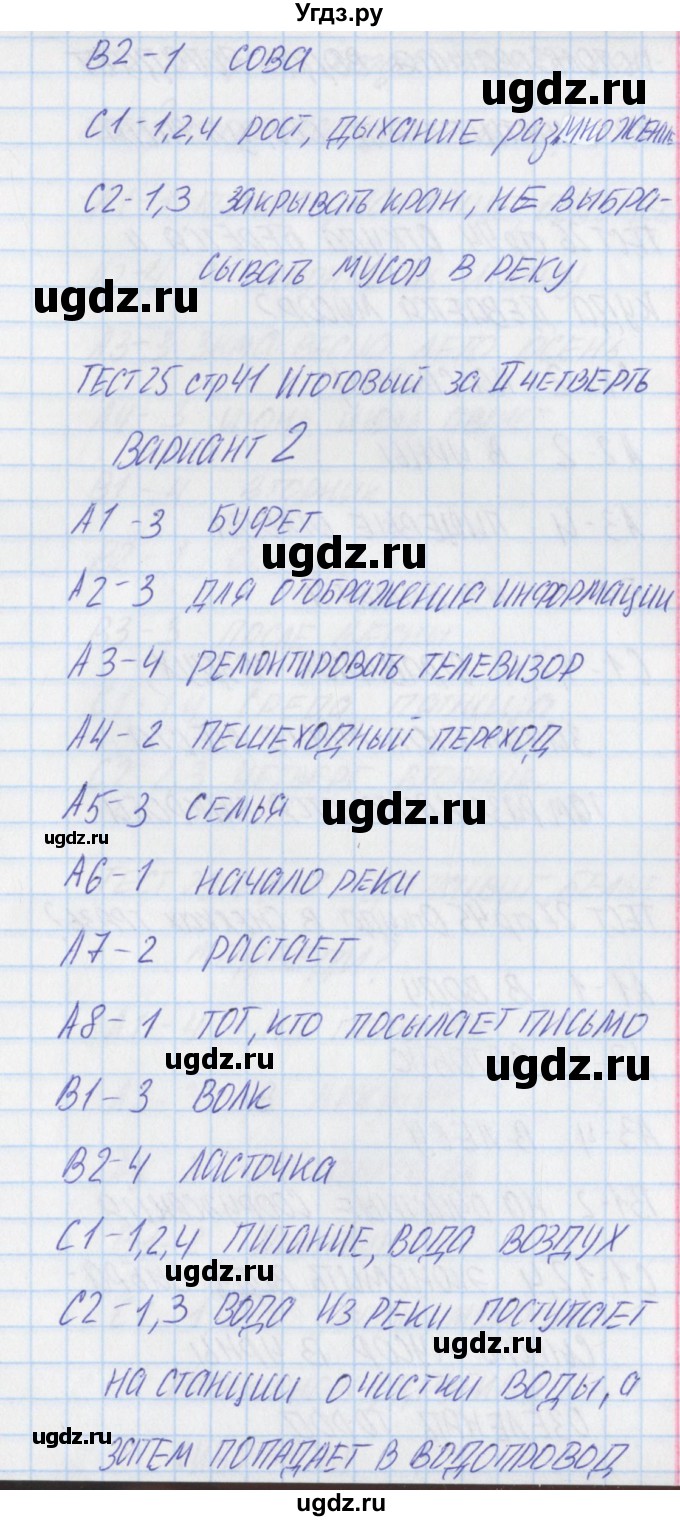 Угдз.ру
В2-1 сова
ugdz.ru
С1-1,2,4 рост, дыхание размножение
С2-1,3 закрывать кран, не выбра-
сывать мусор в реку
ugdz.ru
Тест 25 стр 41 Итоговый за II четверть
Вариант 2
А1-3 буфет
ugdz.ru
А2-3 для отображения информации
А3-4 ремонтировать телевизор
А4-2 пешеходный переход
А5-3 семья
ugdz.ru
ugdz.ru
А6-1 начало реки
А7-2 растает
А8-1 тот, кто посылает письмо
ugdz.ru
ugdz.ru
В1-3 волк
В2-4 ласточка
С1-1,2,4 питание, вода воздух
ugdz.ru
С2-1,3 вода из реки поступает
ugdz.ru
на станции очистки воды, а
ugdz.ru
затем попадает в водопровод
ugdz.ru